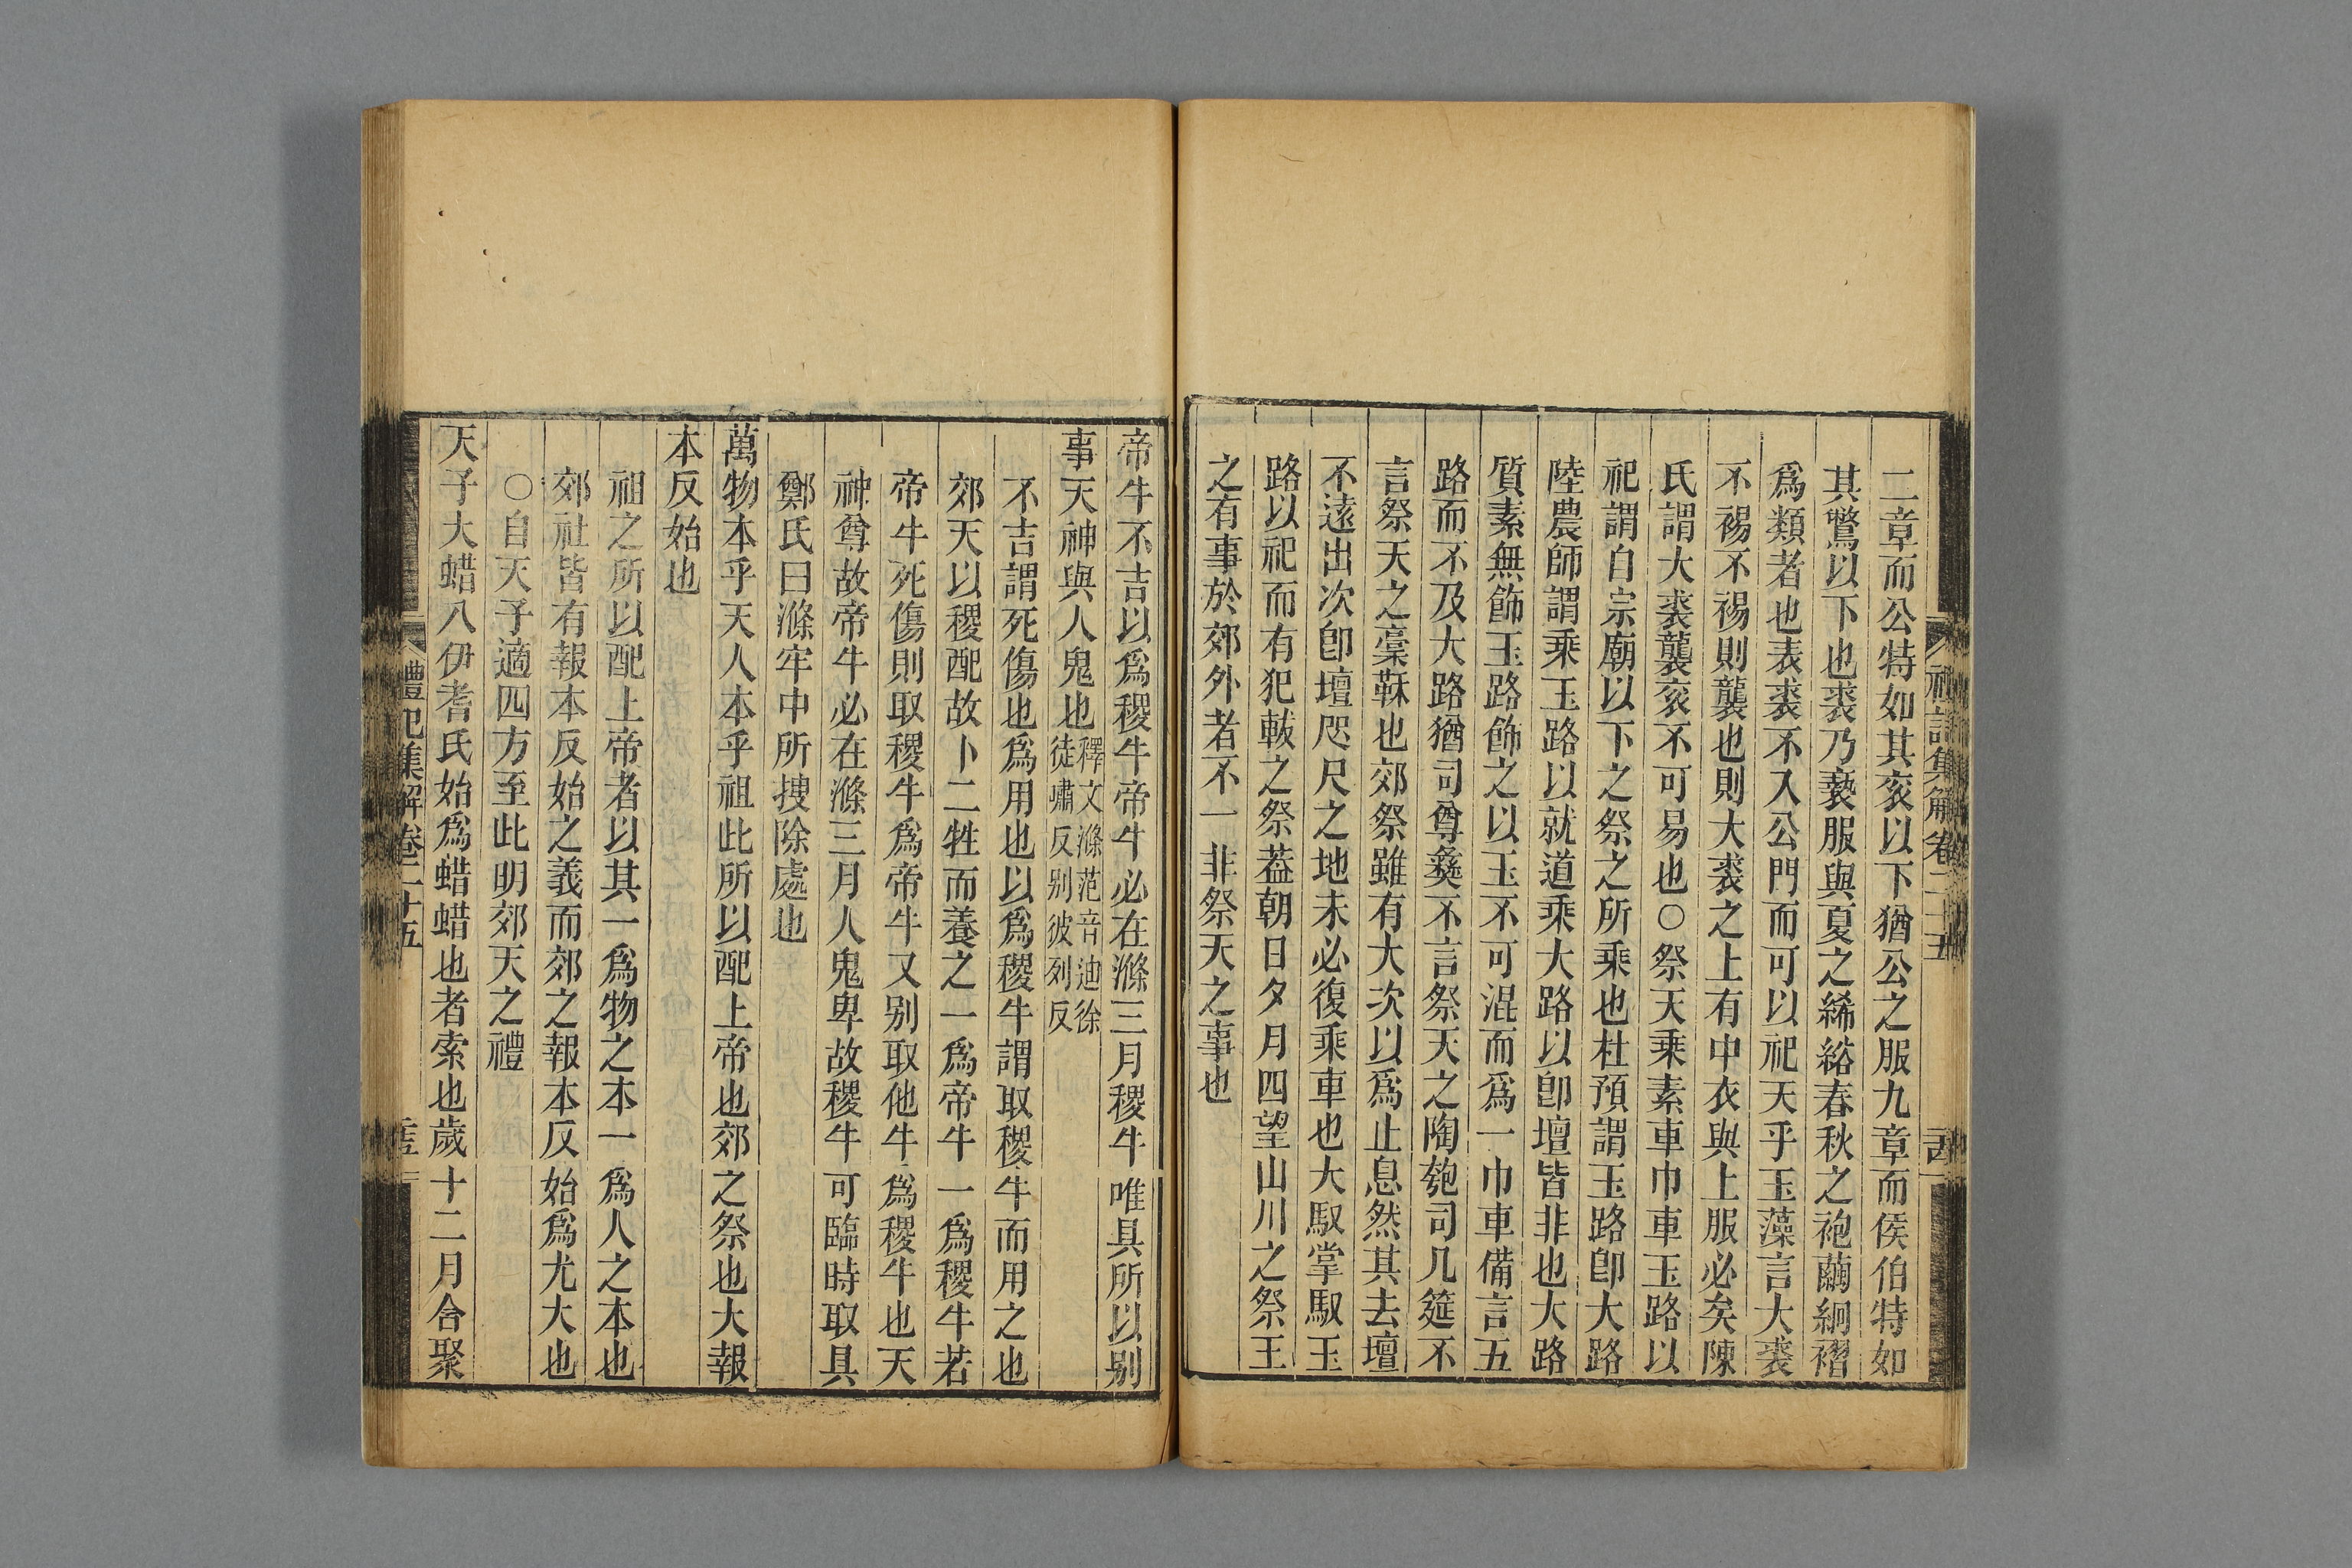 禮記集解卷二十五
二章而公特如其衮以下猶公之服九章而侯伯特如
其鷩以下也裘乃褻服與夏之絺綌春秋之袍繭絅褶
爲類者也表裘不入公門而可以祀天乎玉藻言大裘
不裼不裼則襲也則大裘之上有中衣與上服必矣陳
氏謂大裘襲衮不可易也○祭天乘素車巾車玉路以
祀謂自宗廟以下之祭之所乘也杜預謂玉路卽大路
陸農師謂乘玉路以就道乘大路以卽壇皆非也大路
質素無飾玉路飾之以玉不可混而爲一巾車備言五
路而不及大路猶司尊彝不言祭天之陶匏司几筵不
言祭天之稾鞂也郊祭雖有大次以爲止息然其去壇
不遠出次卽壇咫尺之地未必復乘車也大馭掌馭玉
路以祀而有犯軷之祭葢朝日夕月四望山川之祭王
之有事於郊外者不一非祭天之事也
帝牛不吉以爲稷牛帝牛必在滌三月稷牛唯具所以别
事天神與人鬼也釋文滌范音迪徐
徒嘯反别彼列反
不吉謂死傷也爲用也以爲稷牛謂取稷牛而用之也
郊天以稷配故卜二牲而養之一爲帝牛一爲稷牛若
帝牛死傷則取稷牛爲帝牛又别取他牛爲稷牛也天
神尊故帝牛必在滌三月人鬼卑故稷牛可臨時取具
鄭氏曰滌牢中所搜除處也
萬物本乎天人本乎祖此所以配上帝也郊之祭也大報
本反始也
祖之所以配上帝者以其一爲物之本一爲人之本也
郊社皆有報本反始之義而郊之報本反始爲尤大也
○自天子適四方至此明郊天之禮
天子大蜡八伊耆氏始爲蜡蜡也者索也歲十二月合聚
禮記集解卷二十五